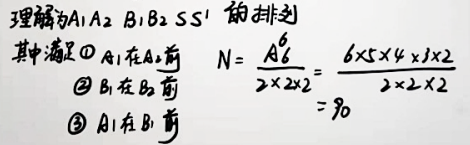 理解为A₁A₂ B₁B₂ SS' 的排列
其中满足① A₁在A₂前
② B₁在B₂前
③ A₁在B₁前
N = A₆⁶ / 2×2×2 = 6×5×4×3×2 / 2×2×2
= 90